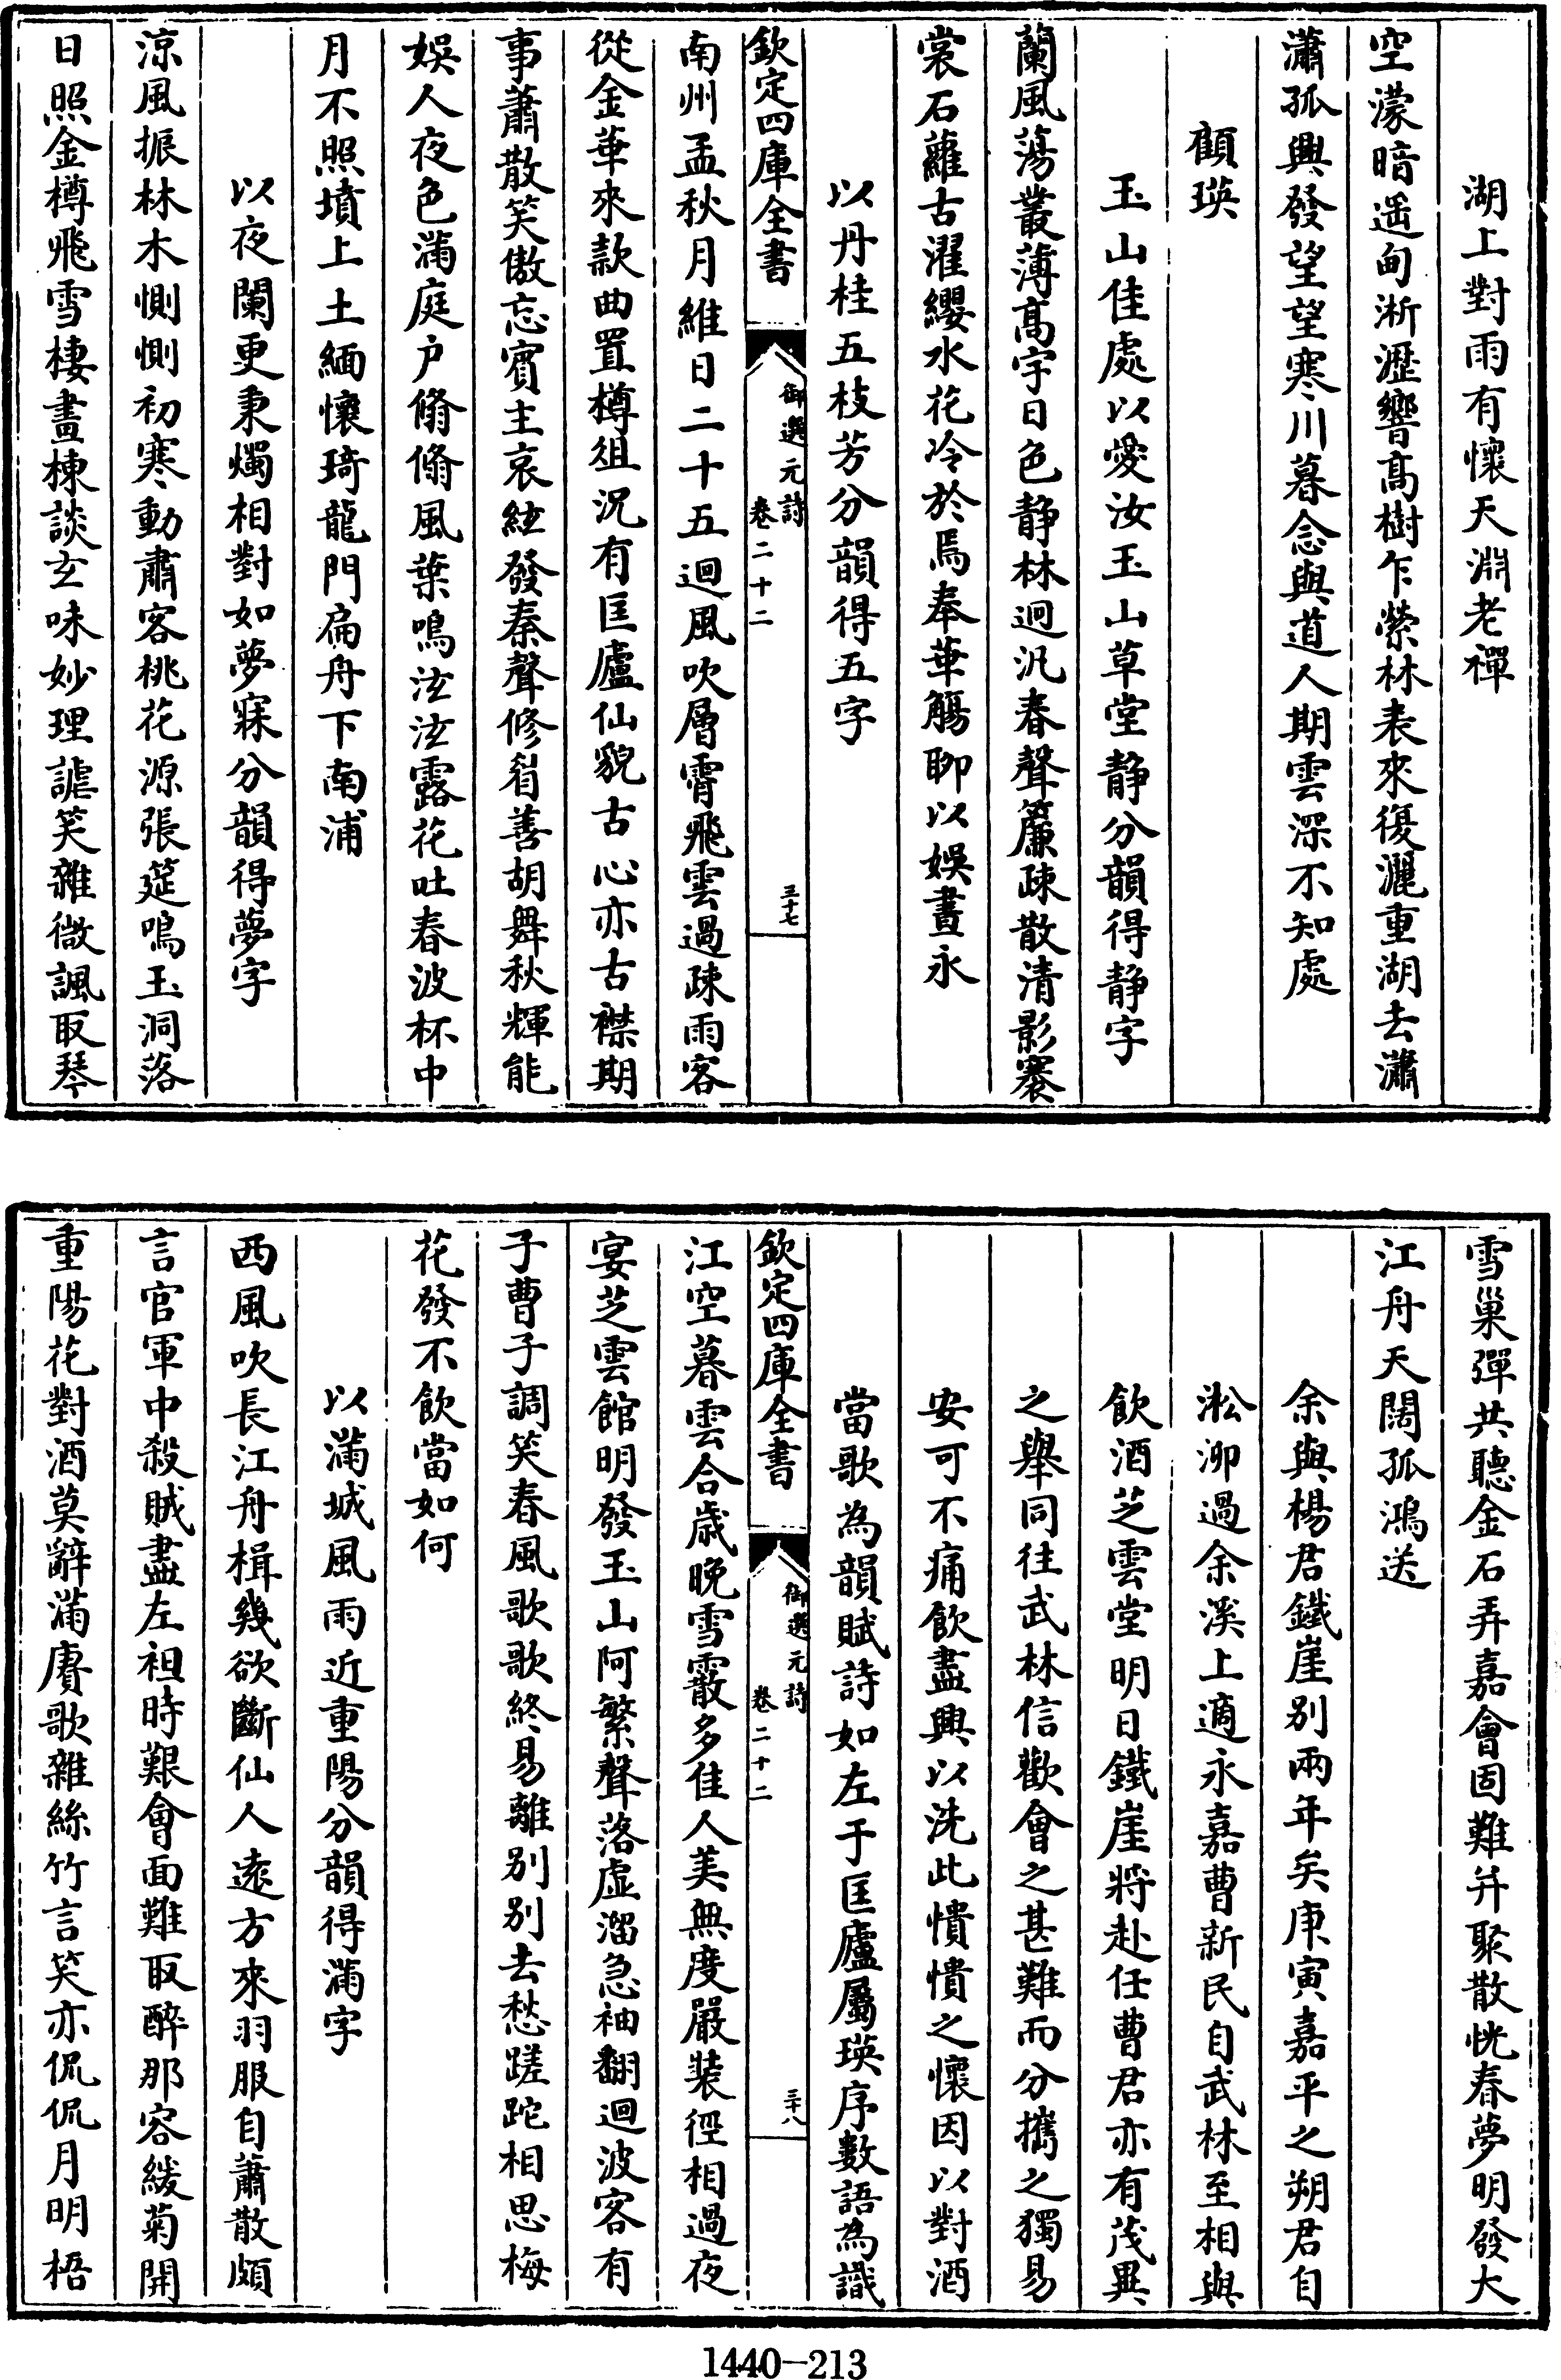 湖上對雨有懷天淵老禪
空濛暗遥甸淅瀝響髙樹乍縈林表來復灑重湖去瀟
瀟孤興發望望寒川暮念與道人期雲深不知處
顧瑛
玉山佳處以愛汝玉山草堂静分韻得静字
蘭風蕩叢薄髙宇日色静林迥汎春聲簾疎散清影褰
裳石蘿古濯纓水花冷於焉奉華觴聊以娛晝永
以丹桂五枝芳分韻得五字
欽定四庫全書
御選元詩
卷二十二
三十七
南州孟秋月維日二十五迴風吹層霄飛雲過疎雨客
從金華來款曲置樽俎況有匡廬仙貌古心亦古襟期
事蕭散笑傲忘賓主哀絃發秦聲修眉善胡舞秋輝能
娛人夜色滿庭户翛翛風葉鳴泫泫露花吐春波杯中
月不照墳上土緬懷琦龍門扁舟下南浦
以夜闌更秉燭相對如夢寐分韻得夢字
涼風振林木惻惻初寒動肅客桃花源張筵鳴玉洞落
日照金樽飛雪棲畫棟談玄味妙理謔笑雜微諷取琴
雪巢彈共聽金石弄嘉會固難并聚散恍春夢明發大
江舟天闊孤鴻送
余與楊君鐵崖别兩年矣庚寅嘉平之朔君自
淞泖過余溪上適永嘉曹新民自武林至相與
飲酒芝雲堂明日鐵崖將赴任曹君亦有茂異
之舉同往武林信歡會之甚難而分攜之獨易
安可不痛飲盡興以洗此憒憒之懷因以對酒
當歌為韻賦詩如左于匡廬屬瑛序數語為識
欽定四庫全書
御選元詩
卷二十二
三十八
江空暮雲合歳晚雪霰多佳人美無度嚴裝徑相過夜
宴芝雲館明發玉山阿繁聲落虚溜急袖翻迴波客有
子曹子調笑春風歌歌終易離别别去愁蹉跎相思梅
花發不飲當如何
以滿城風雨近重陽分韻得滿字
西風吹長江舟楫幾欲斷仙人逺方來羽服自蕭散頗
言官軍中殺賊盡左袒時艱會面難取醉那容緩菊開
重陽花對酒莫辭滿賡歌雜絲竹言笑亦侃侃月明梧
1440-213